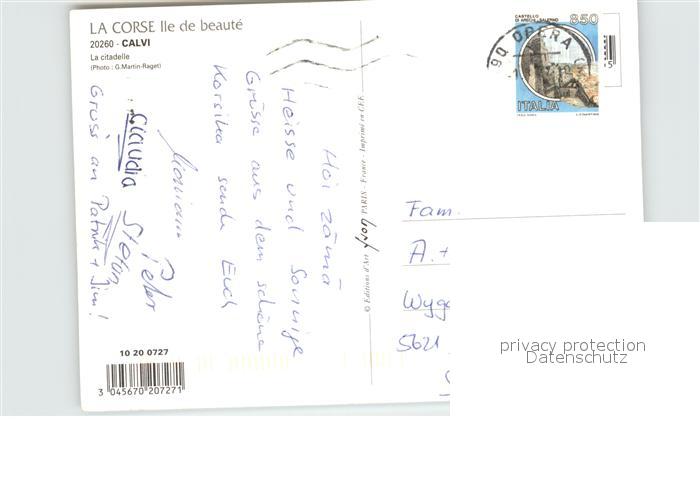 LA CORSE Ile de beauté
20260 - CALVI
La citadelle
(Photo : G.Martin-Raget)
Hoi zämä
Heisse und Sonnige
Grüsse aus dem schöne
Korsika sende Euch
Mariann Peter
Claudia Stefan
Gruss an Patrik + Jim!
10 20 0727
3 045670 207271
PARIS - France - Imprimé en CEE
CASTELLO
DI ARECHI - SALERNO
850
ITALIA
90 OPERA
Fam.
A. +
5621
privacy protection
Datenschutz